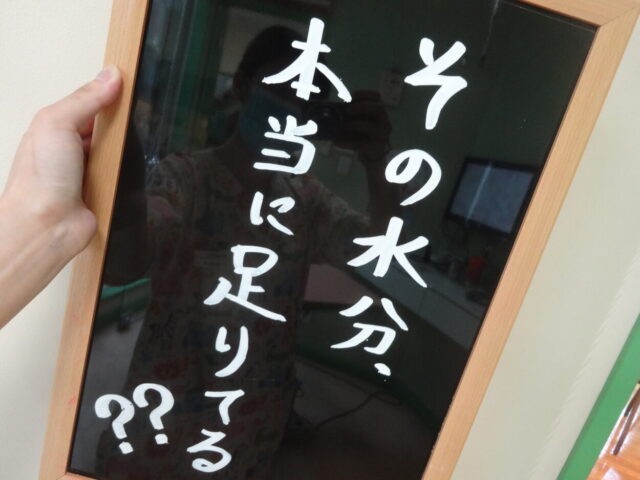 その水分、
本当に足りてる
??